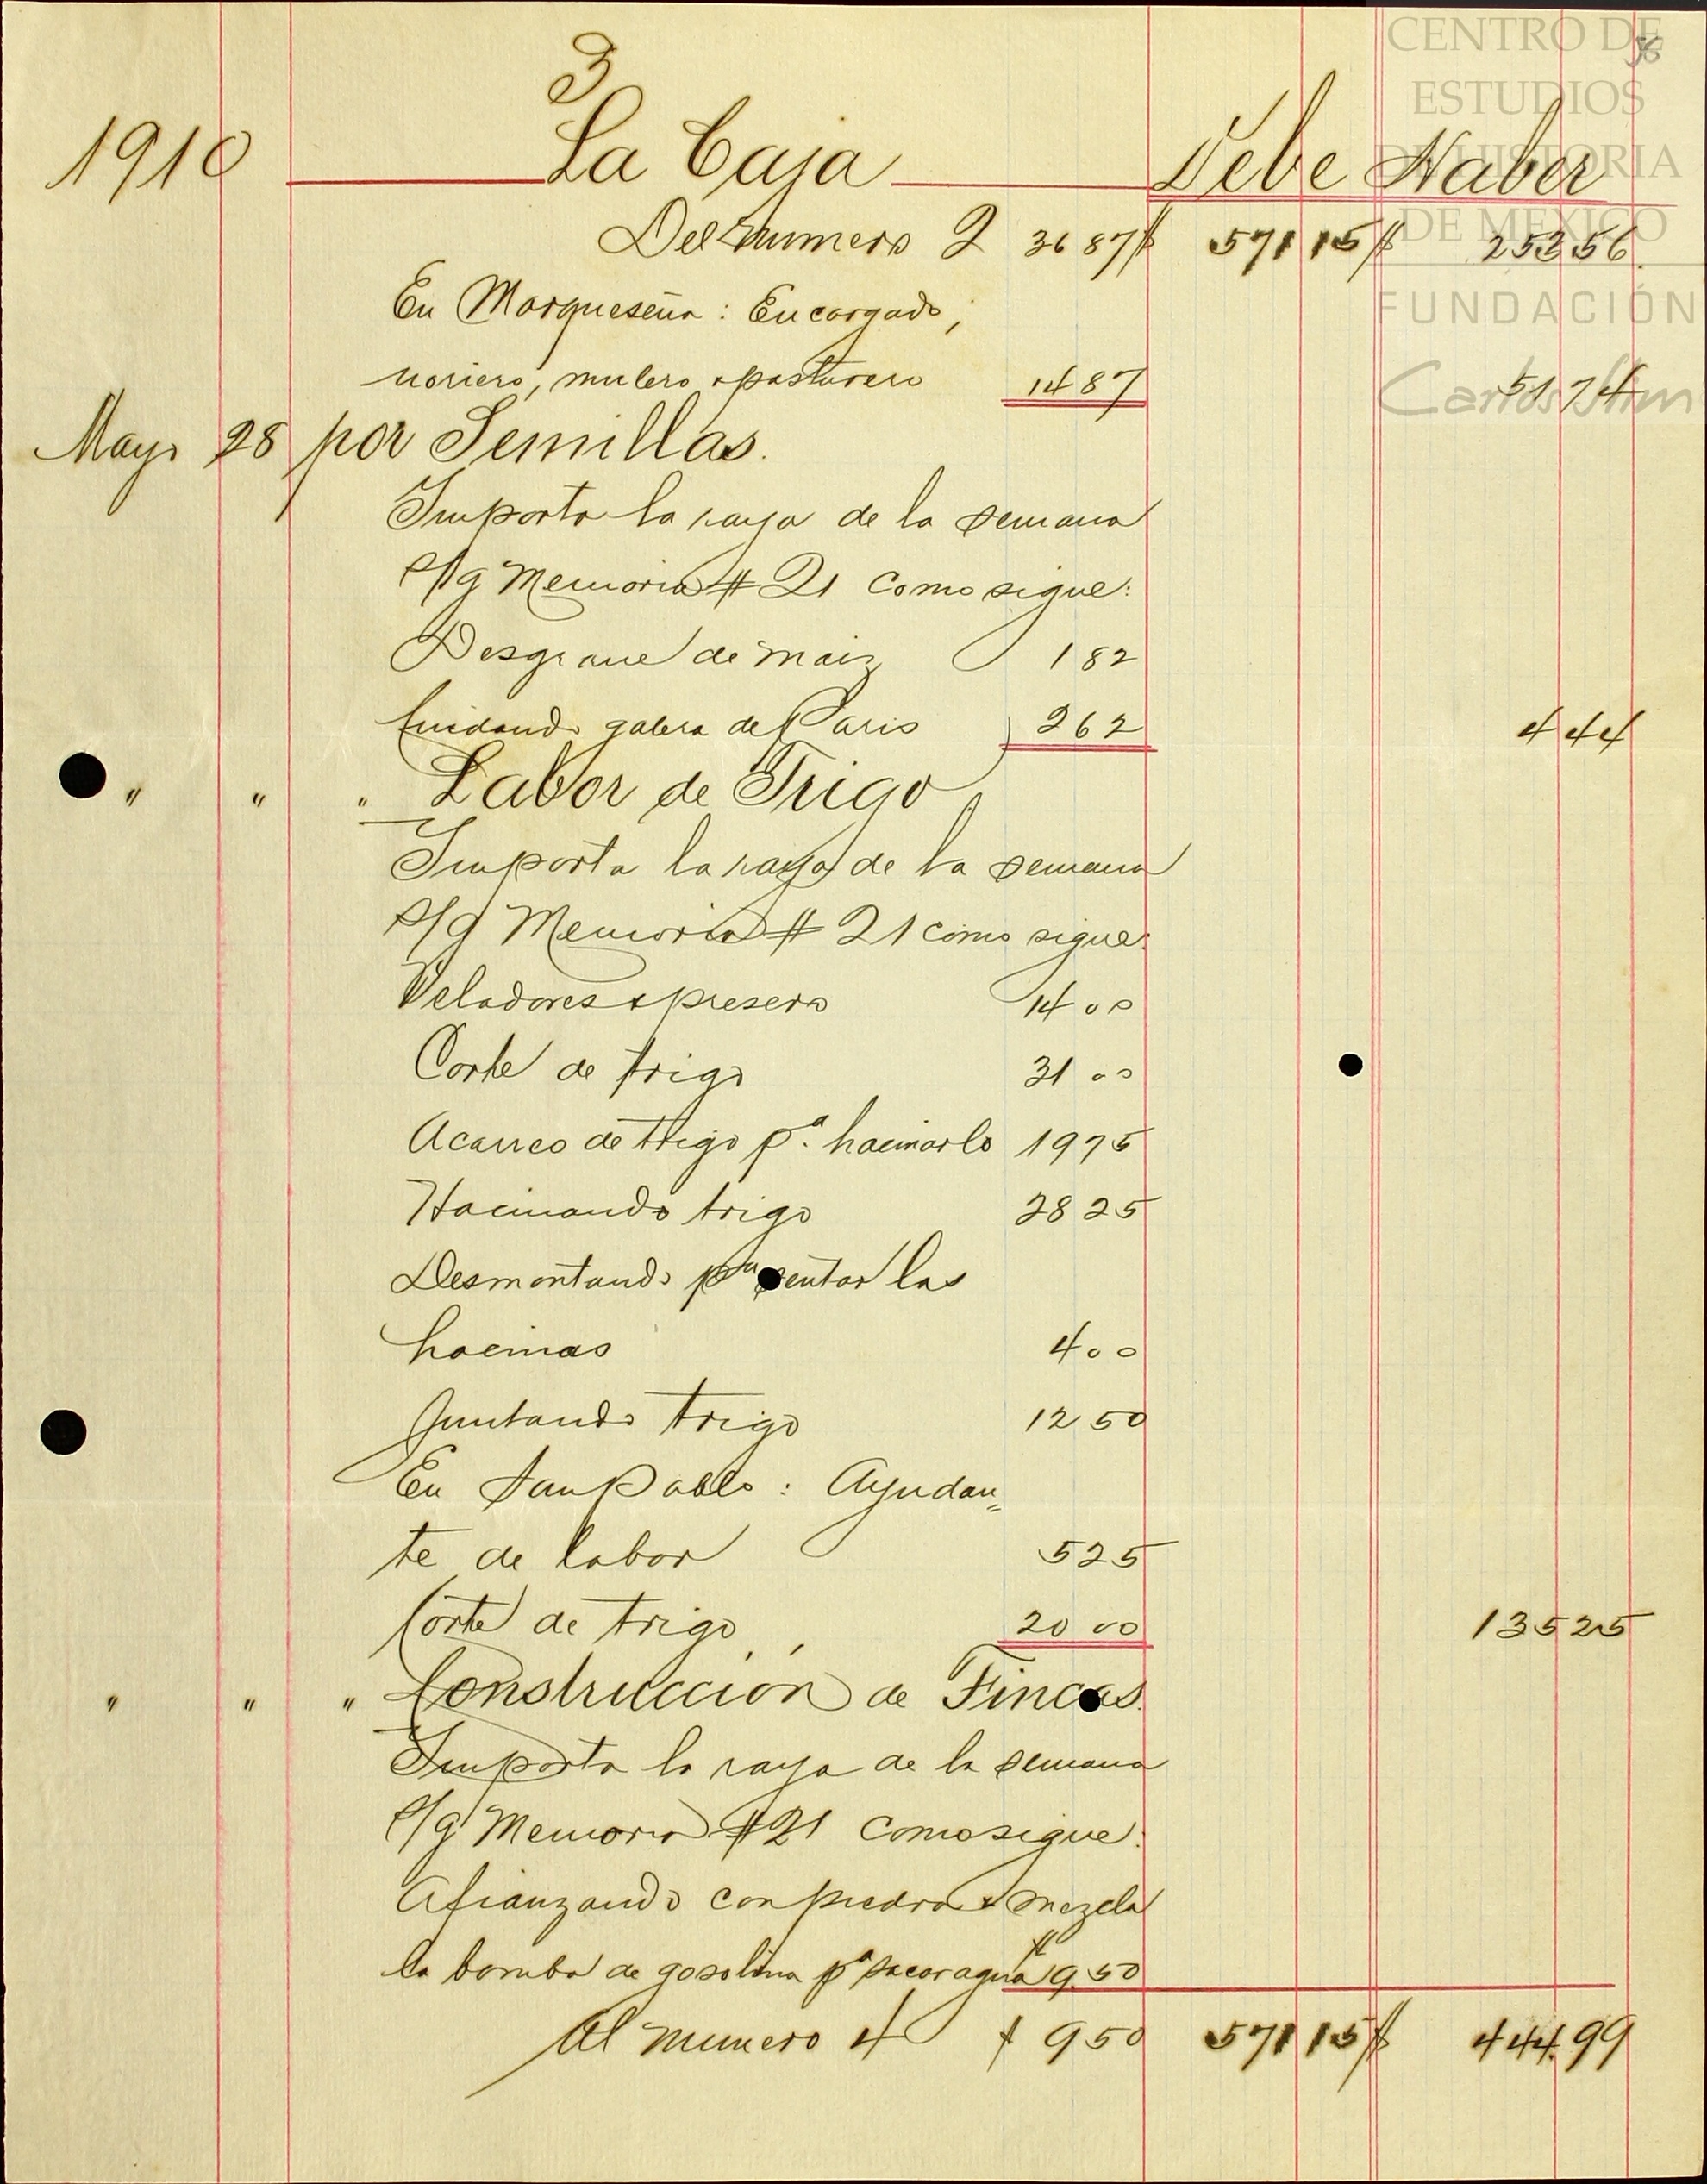 3
1910 La Caja Debe Haber
Del numero 2 36 87 $ 571 15 $ 253 56
En Marqueseña: Encargado,
noriero, mulero y pasturero 14 87 51 74
Mayo 28 por Semillas.
Importa la raya de la semana
s/g Memoria # 21 como sigue:
Desgrane de maiz 1 82
Cuidando galera de Paris 2 62 4 44
" " " Labor de Trigo
Importa la raya de la semana
s/g Memoria # 21 como sigue:
Veladores y presero 14 00
Corte de trigo 31 00
Acarreo de trigo pª. hacinarlo 19 75
Hacinando trigo 28 25
Desmontando pª sentar las
hacinas 4 00
Juntando trigo 12 50
En San Pablo: Ayudan=
te de labor 5 25
Corte de trigo 20 00 135 25
" " " Construcción de Fincas.
Importa la raya de la semana
s/g Memoria #21 como sigue:
Afianzando con piedra y mezcla
la bomba de gasolina pª sacar agua $ 9.50
Al numero 4 $ 9 50 571 15 $ 444.99
CENTRO DE
ESTUDIOS
DE HISTORIA
DE MÉXICO
FUNDACIÓN
Carlos Slim